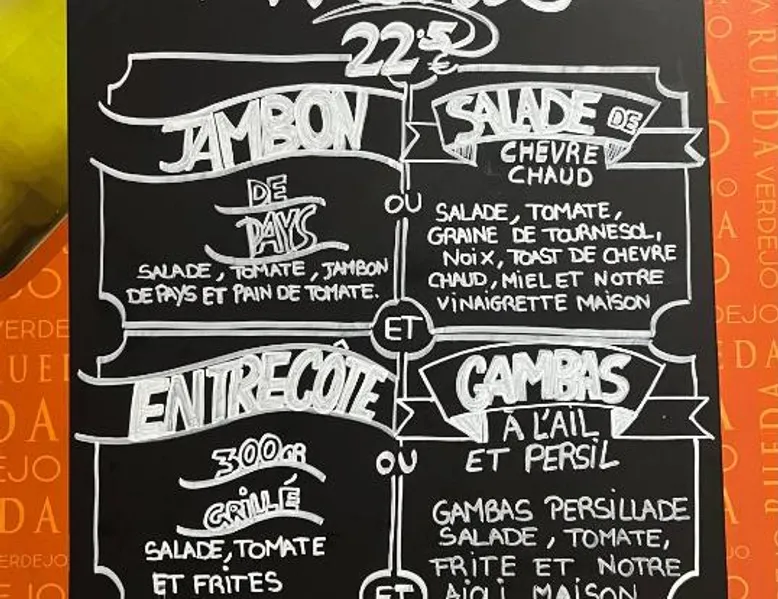 22.5€
JAMBON
DE
PAYS
SALADE, TOMATE, JAMBON
DE PAYS ET PAIN DE TOMATE.
OU
SALADE DE
CHEVRE
CHAUD
SALADE, TOMATE,
GRAINE DE TOURNESOL,
NOIX, TOAST DE CHEVRE
CHAUD, MIEL ET NOTRE
VINAIGRETTE MAISON
ET
ENTRECÔTE
300GR
GRILLÉ
SALADE, TOMATE
ET FRITES
OU
GAMBAS
À L'AIL
ET PERSIL
GAMBAS PERSILLADE
SALADE, TOMATE,
FRITE ET NOTRE
AIOLI MAISON
ET
RUEDA
VERDEJO